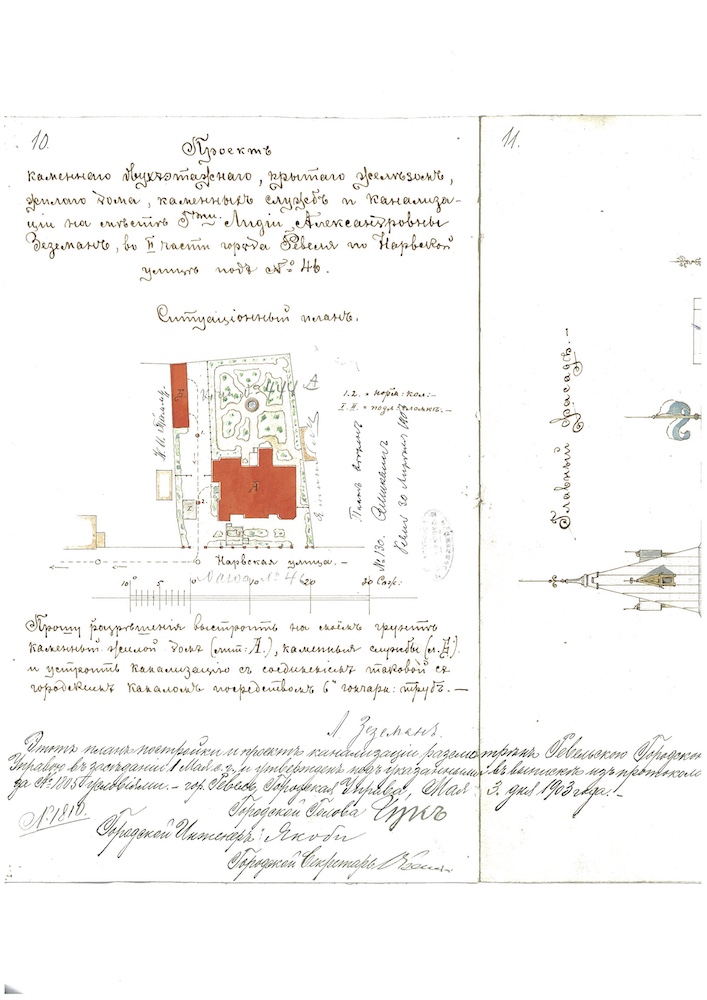 10.
Проектъ
каменнаго двухэтажнаго, крытаго желѣзомъ,
жилаго дома, каменныхъ службъ и канализа-
ціи на мѣстѣ Г-жи Лидіи Александровны
Зеземанъ, во II части города Ревеля по Нарвской
улицѣ подъ № 46.
Ситуаціонный планъ.
444 A
1. 2. = норм: кол:-
A.
2.
№ 130.
Ревель 30 Апрѣля 1903
Нарвская улица. –
№ 46
10 5 0 10 20 30 Саж:
Прошу разрѣшенія выстроить на моемъ грунтѣ
каменный жилой домъ (лит: А.), каменныя службы
и устроить канализацію съ соединеніемъ таковой съ
городскимъ каналомъ посредствомъ 6" гончарн: трубъ. –
Л. Зеземанъ.
Этотъ планъ постройки и проектъ канализаціи разсмотрѣнъ Ревельскою Городскою
Управою въ засѣданіи 1 Мая с. г. и утвержденъ подъ указанными въ выпискѣ изъ протокола
за № 1705 условіями. – гор. Ревель, Городская Управа, Мая 3. дня 1903 года. –
№ 1810.
Городской Голова
Городской Инженеръ: Якоби
Городской Секретарь
11.
Главный фасадъ. –